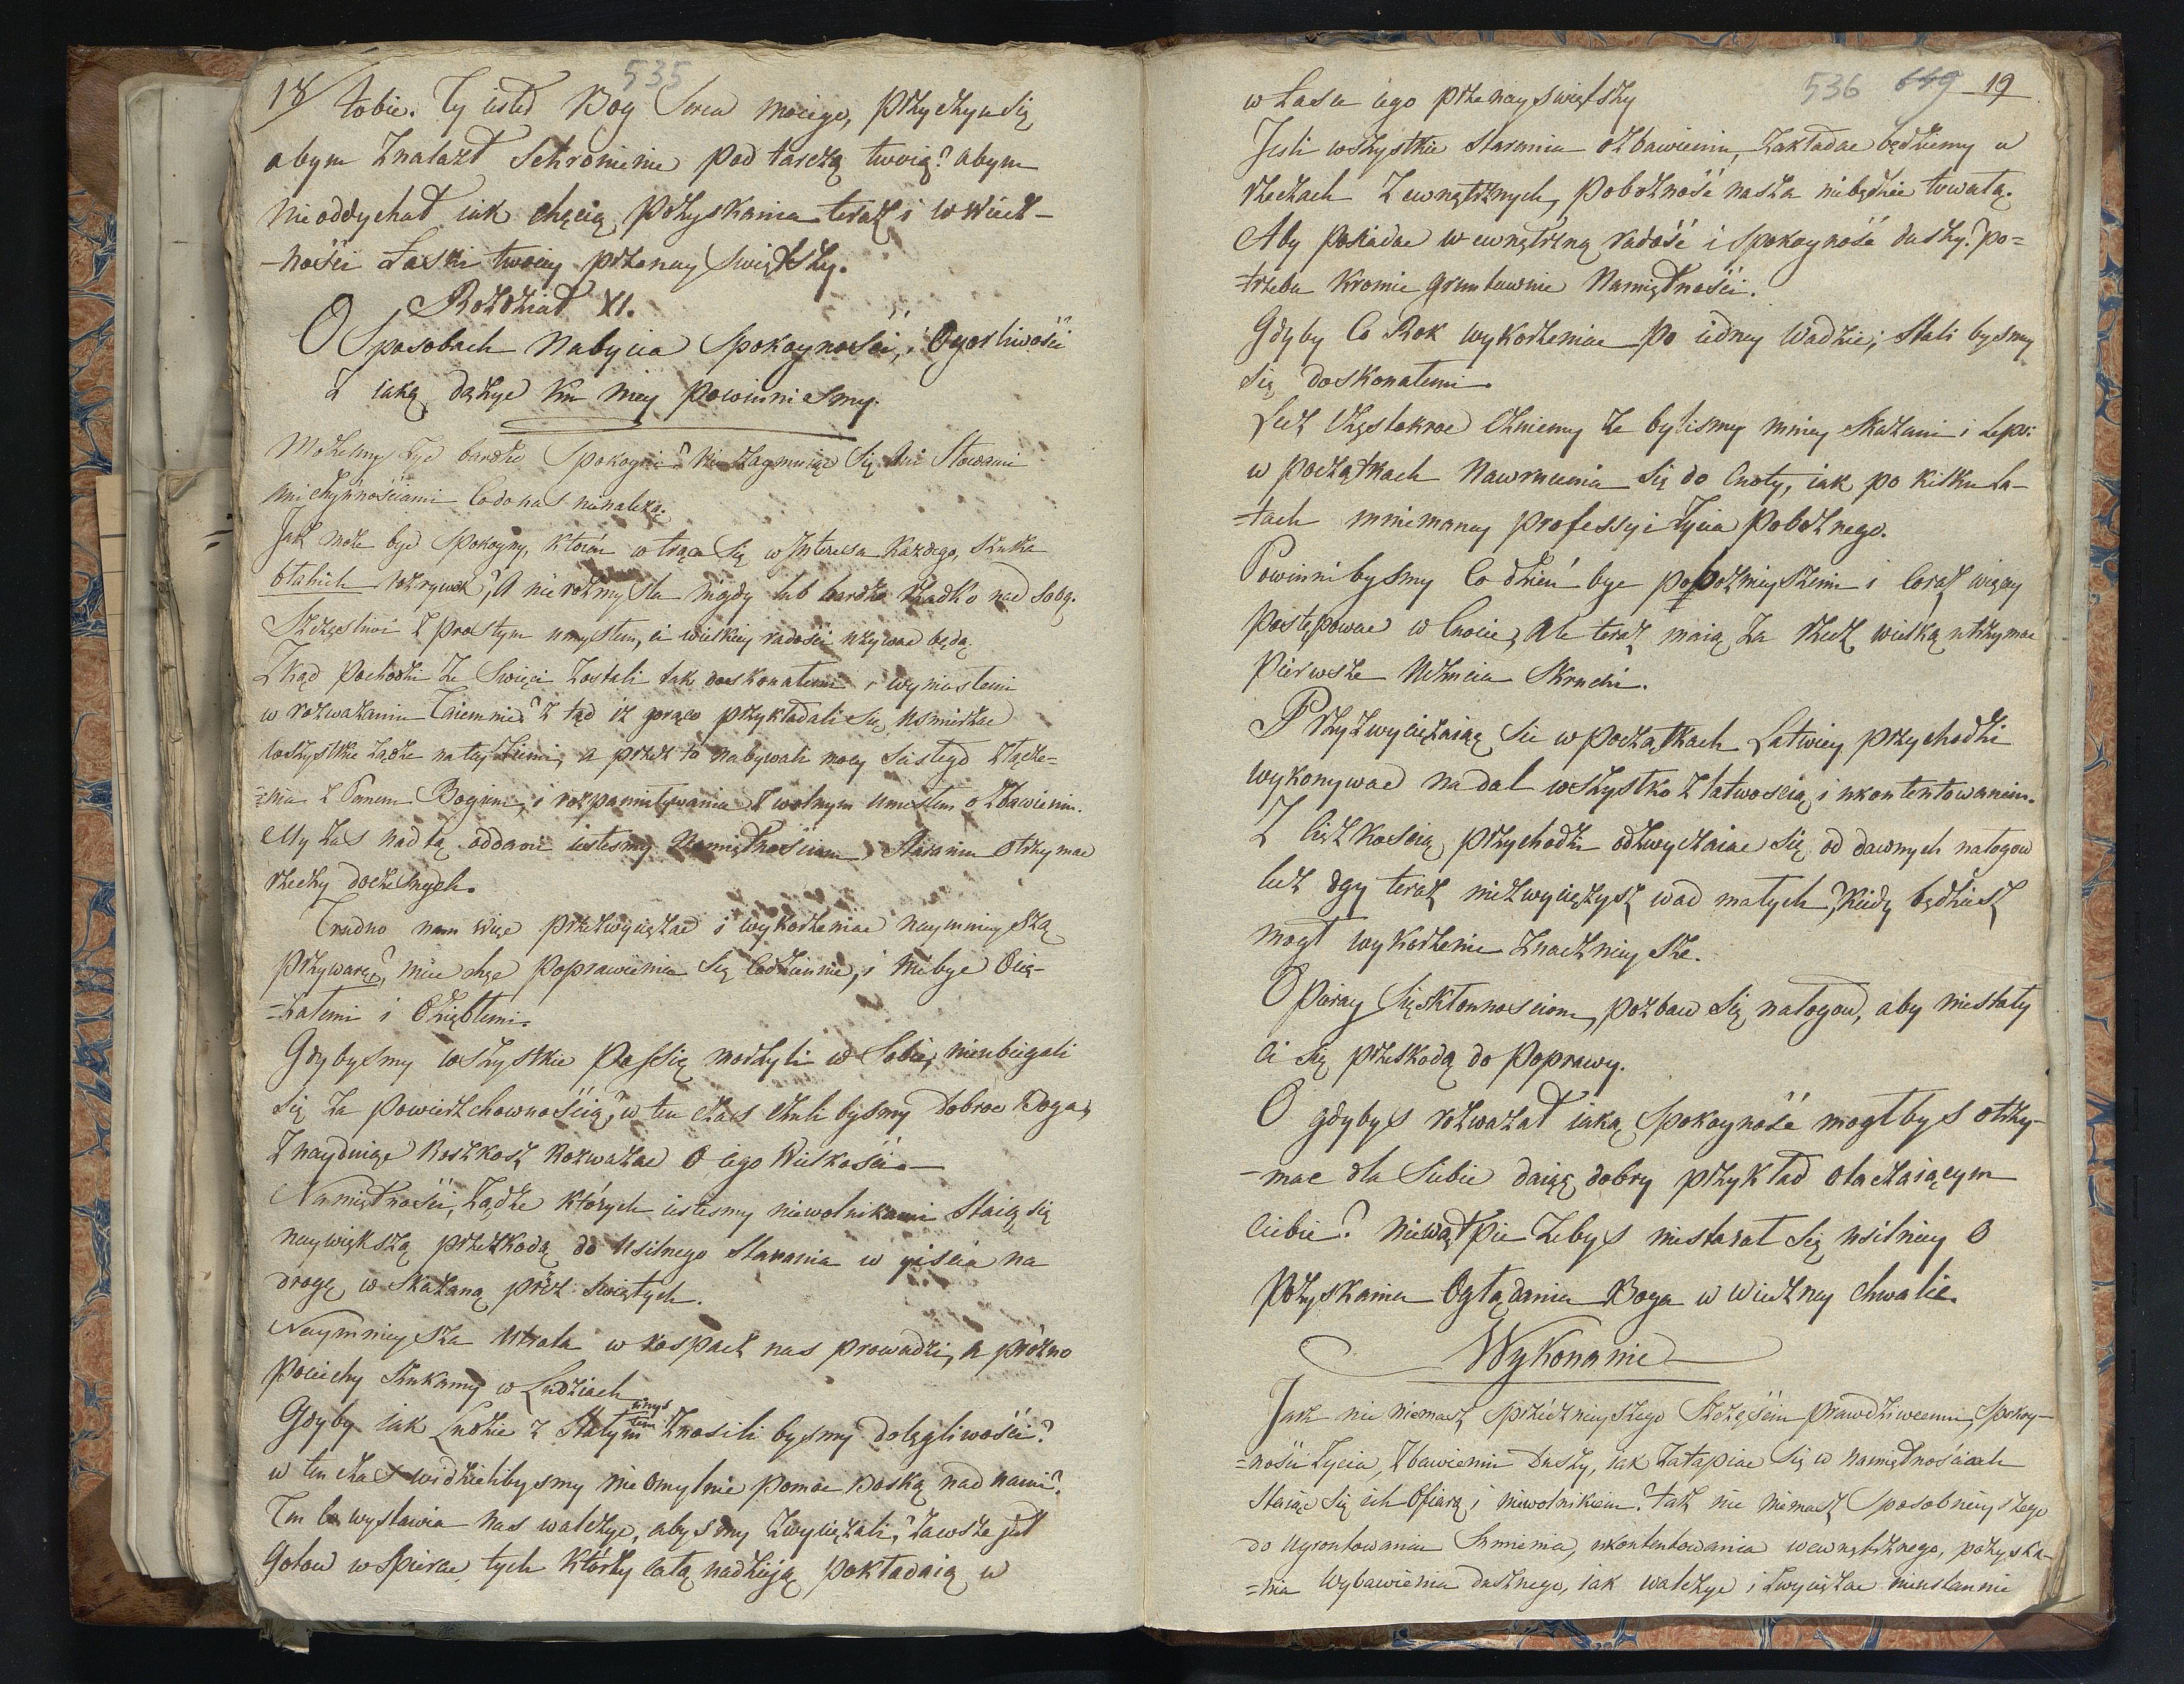 535
18/ tobie. Ty iesteś Bog Serca moiego, przyczyn się
abym znalazł Schronienie pod tarczą twoią? abym
nie oddychał iak chęcią pozyskania teraz i w wiecz-
-ności Łaski twoiey przenayświętszy.
Rozdział XI.
O Sposobach Nabycia Spokoyności, i Ogorliwości
z iaką dążyc ku niey powinniesmy.
Mozemy żyć bardzo Spokoyni? nie zaymuiąc Się Ani Słowami
Ani czynnościami Co do nas nienalezą.
Jak może być Spokoyny, ktoren wtrąca Się w Interesa każdego, szuka
błahich rozrywek? A nie rozmysla nigdy lub bardzo rzadko nad sobą.
Szczęsliwi z prostym umysłem, ci wielkiey radości używać będą.
Zkąd pochodzi że Swięci zostali tak doskonałemi i wyniosłemi
w rozważaniu Taiemnic? z tąd iż prace przykładali się usmierzac
wszystkie żądze na tey Ziemi, a przez to nabywali mocy scisłego złącze-
=nia z Panem Bogiem, i rozpamiętywania z wolnym umysłem o zbawieniu.
My zas nadto oddani iestesmy Namiętnościom, Staraniu otrzymac
rzeczy doczesnych.
Trudno nam więc przezwyciężac i wykorzeniac naymnieyszą
przywarę, miec chęc poprawienia się codziennie, i niebyc Ocię-
=żałemi i Oziębłemi.
Gdybysmy wszystkie Passię morzyli w Sobie, nieubiegali
się za powierzchownością, w ten czas czuli bysmy dobroc Boga,
Znayduiąc Roszkosz Rozważac O iego Wielkości.
Namiętności, Żądze których iestesmy niewolnikami Staią się
naywiększą przeszkodą do Usilnego Starania w yiścia na
drogę w skazaną przez Swiętych.
Naymnieysza Utrata w rospacz nas prowadzi, a prożno
pociechy szukamy w Ludziach
Gdyby iak Ludzie z Stałym umys
łem Znosili bysmy dolegliwości?
w ten czas widzielibysmy nieomylnie pomoc Boską nad nami?
Ten Co wystawia nas walczyc, abysmy zwyciężali, zawsze iest
Gotow wspierac tych Którzy całą nadzieję pokładaią w
536 649 19
w Łasce iego przenayswiętszy
Jesli wszystkie starania ozbawieniu, zakładac będziemy w
rzeczach Zewnętrznych, pobożność nasza niebędzie towałą.
Aby posiadac wewnętrzną radość i Spokoyność duszy? po=
=trzeba kromie gruntownie Namiętności.
Gdyby Co Rok wykorzeniac po iedney Wadzie; Stali bysmy
się doskonałemi.
Lecz Częstokroc Czuiemy że bylismy mniey skażeni i Lepsi
w początkach Nawrucenia się do Cnoty, iak po kilku La-
=tach mniemaney professyi życia pobożnego.
Powinnibysmy Co dzień byc pobożnieyszemi i Coraz więcey
postępowac w Cnocie, Ale teraz maią za rzecz wielką utrzymac
pierwsze Uczucia Skruchi.
Przyzwyciężaiąc sie w początkach Łatwiey przychodzi
wykonywac nadal wszystko z łatwoscią i ukontentowaniem.
Z Cięzkoscią przychodzi odzwyczaiac się od dawnych nałogow
lecz gdy teraz niezwyciężysz wad małych, kiedy będziesz
mogł wykorzenic znacznieysze.
Opieray Się skłonnosciom, pozbaw się nałogow, aby niestały
Ci się przeskodą do Poprawy.
O gdybys rozważał iaką Spokoyność mogłbys otrzy-
-mac dla Siebie daiąc dobry przykład otaczaiącym
Ciebie? niewątpie żebys niestarał się usilniey O
pozyskania Oglądania Boga w wieczney chwalie.
Wykonanie
Jak nic niemasz sprzecznieyszego Szczęściu prawdziwemu, Spokoy-
=ności życia, Zbawieniu Duszy, iak zatapiac Się w namiętnościach
Staiąc się ich Ofiarą i niewolnikiem? tak nic niemasz Sposobnieyszego
do Ugrontowania Sumienia, ukontentowania wewnętrznego, pozyska-
=nia Wybawienia dusznego, iak walczyc i Zwyciężac nieustannie